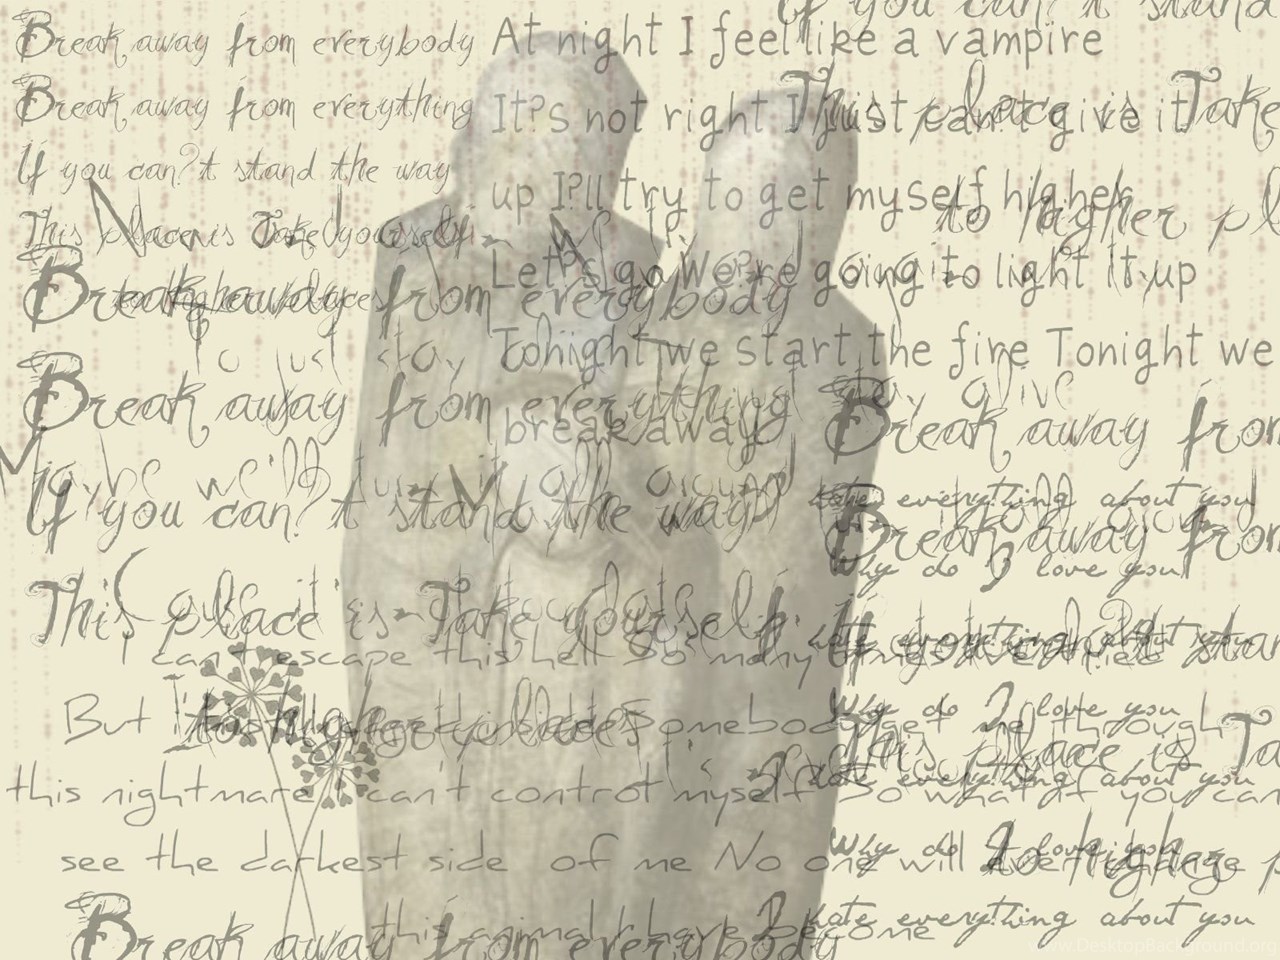 If you can?t stand
Break away from everybody
At night I feel like a vampire
Break away from everything
It?s not right I just can?t give it
This place is Take
If you can?t stand the way
up I?ll try to get myself higher
to higher pl
This place is Take yourself
Let?s go We?re going to light it up
Break away from everybody
to higher places
to just stay
Tonight we start the fire Tonight we
Break away from everything
break away
stay alive
Break away from
Maybe we'll turn it all around
hate everything about you
If you can?t stand the way
Break away from
Why do I love you
This place is Take yourself
I can't escape this hell So many times I've tried
hate everything about you
If you can?t stan
to higher places
But I'm still caged inside Somebody get me through
Why do I love you
This place is Ta
this nightmare I can't control myself So what if you can
I hate everything about you
see the darkest side of me No one will ever change
Why do I love you
to higher p
this animal I have become
I hate everything about you
Break away from everybody
www.DesktopBackground.org